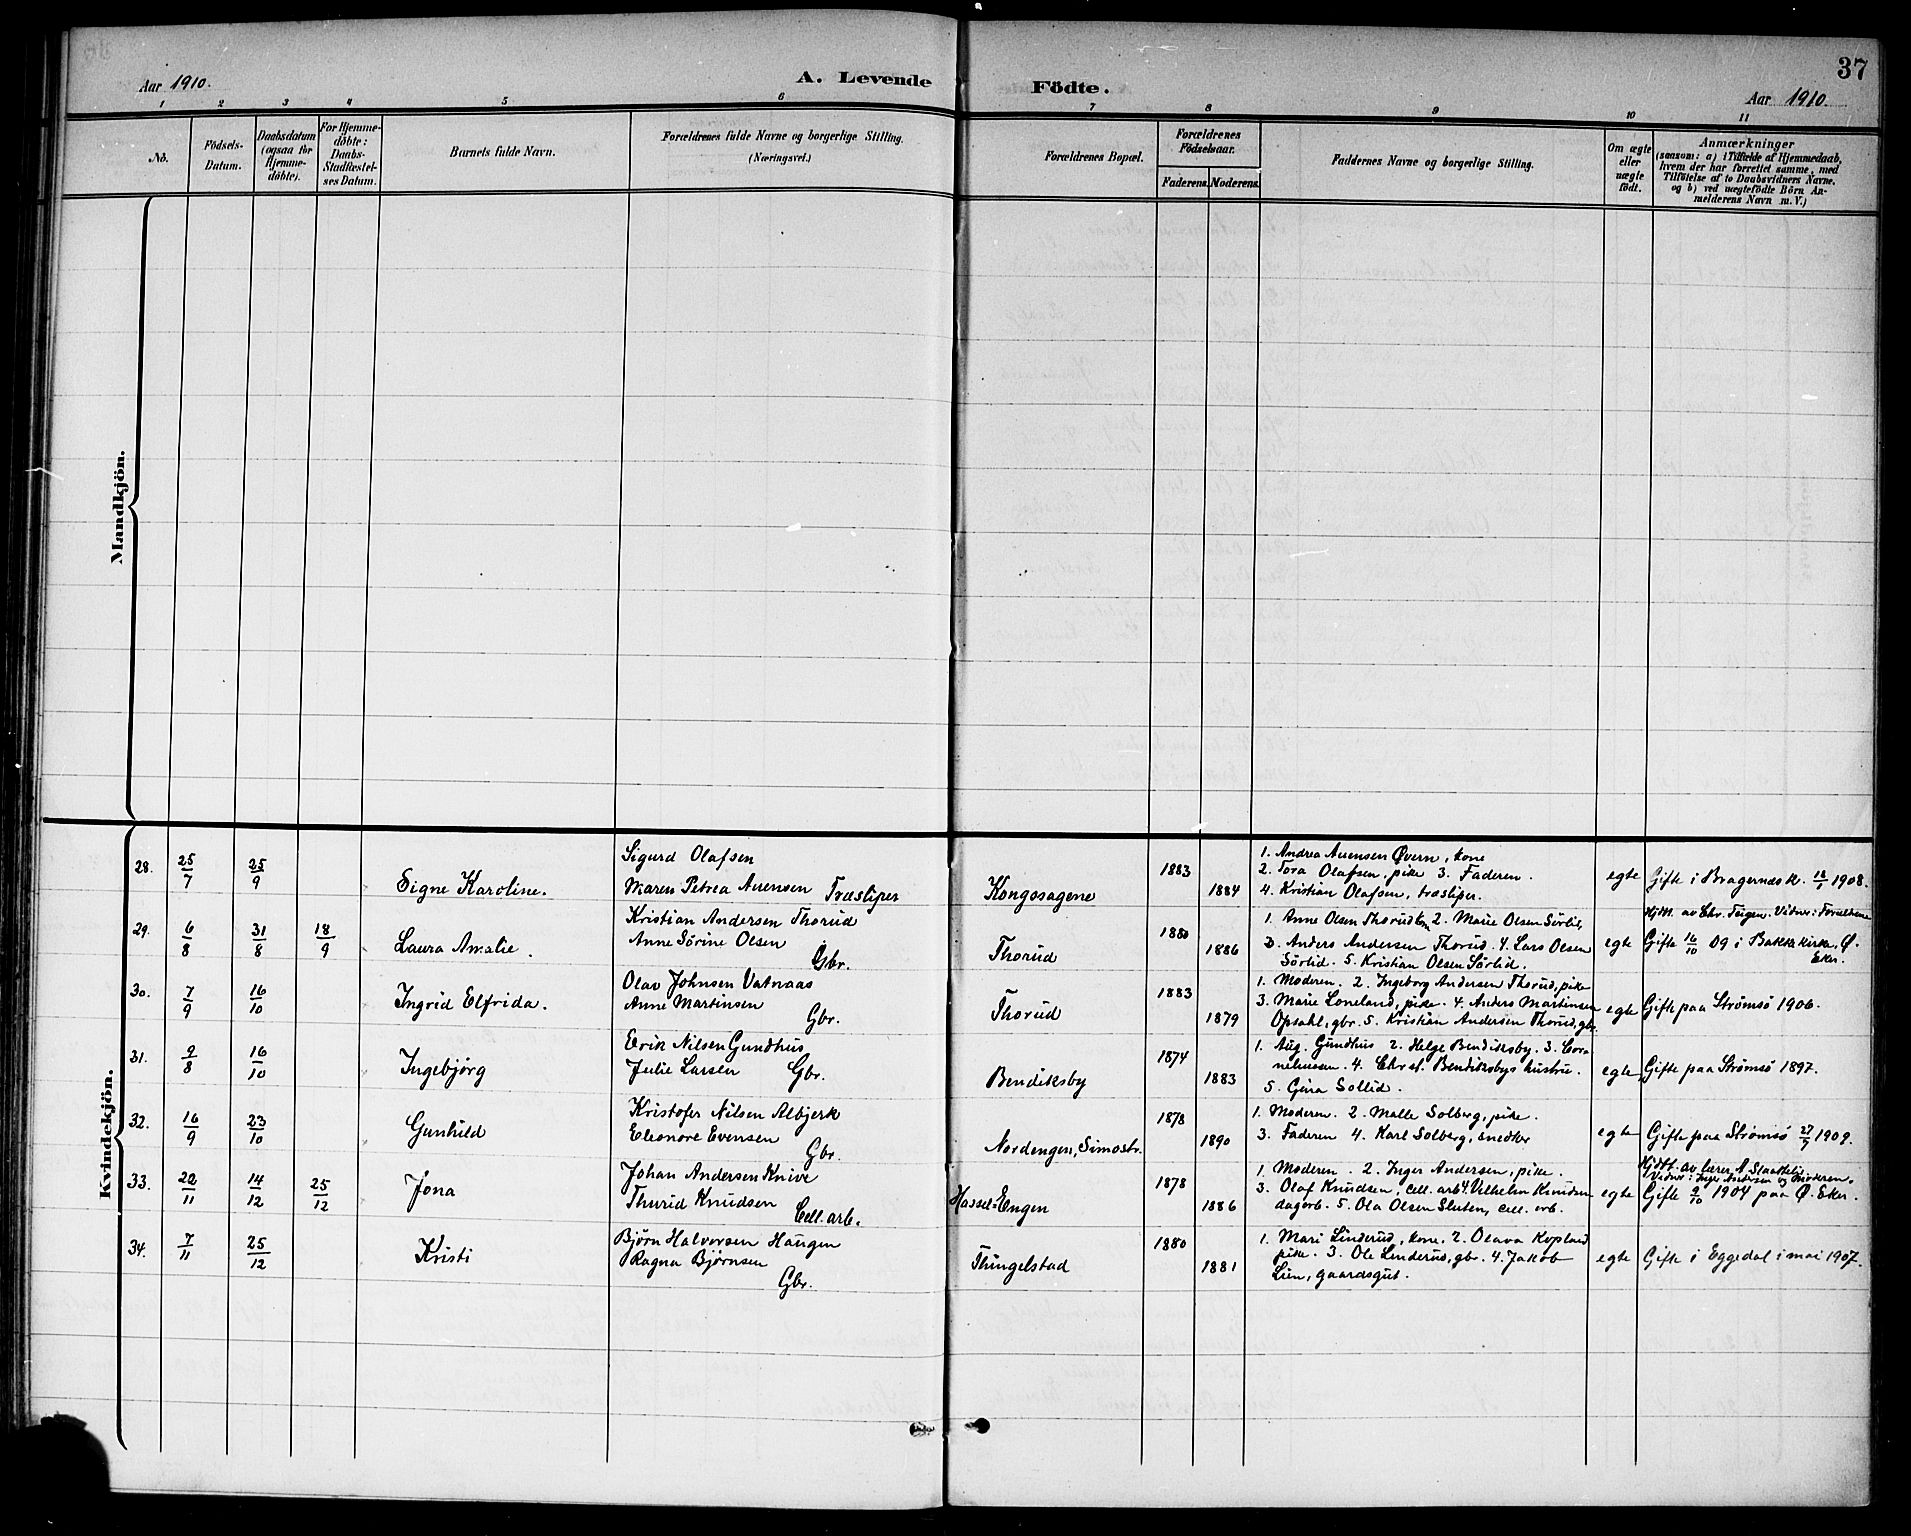 37
Aar 1910.
A. Levende
Födte.
Aar 1910.
1 2 3 4 5 6 7 8 9 10 11
No.
Födsels-
Datum.
Daabsdatum
(ogsaa for
Hjemme-
döbte).
For Hjemme-
döbte:
Daabs-
Stadfæstel-
ses Datum.
Barnets fulde Navn.
Forældrenes fulde Navne og borgerlige Stilling.
(Næringsvei.)
Forældrenes Bopæl.
Forældrenes
Födselsaar.
Faderens.
Moderens.
Faddernes Navne og borgerlige Stilling.
Om ægte
eller
uægte
födt.
Anmærkninger
(saasom: a) i Tilfælde af Hjemmedaab,
hvem der har forrettet samme, med
Tilföielse af to Daabsvidners Navne,
og b) ved uægtefödte Börn An-
melderens Navn m. V.)
Mandkjön.
Kvindekjön.
28.
25/7
25/9
Signe Karoline.
Sigurd Olafsen
Maren Petrea Auensen
Træsliper
Kongssagene
1883
1884
1. Andrea Auensen Øvern, kone
2. Tora Olafsen, pike 3. Faderen.
4. Kristian Olafsen, træsliper.
egte
Gifte i Bragernæs k. 1908.
29.
6/8
31/8
18/9
Laura Amalie.
Kristian Andersen Thorud
Anne Sörine Olsen
Gbr.
Thorud
1880
1886
1. Anne Olsen Thorud 2. Marie Olsen Sörlie,
3. Anders Andersen Thorud. 4. Lars Olsen
Sörlid. 5. Kristian Olsen Sörlid.
egte
Hjm. av Chr. Teigen. Vidner: Forældrene
Gifte 16/10 09 i Bakke kirke, Ø.
Eker.
30.
7/9
16/10
Ingrid Elfrida.
Olav Johnsen Vatnaas
Anne Martinsen
Gbr.
Thorud
1883
1879
1. Moderen. 2. Ingeborg Andersen Thorud, pike
3. Marie Loneland, pike. 4. Anders Martinsen
Opsahl, gbr. 5. Kristian Andersen Thorud, gbr.
egte
Gifte paa Strømsö 1906.
31.
9/8
16/10
Ingebjörg
Erik Nilsen Gundhus
Julie Larsen
Gbr.
Bendiksby
1874
1883
1. Aug. Gundhus 2. Helge Bendiksby. 3. Cor-
neliussen. 4. Chr. st. Bendiksbys hustru.
5. Gina Sollid.
egte
Gifte paa Strømsö 1897.
32.
16/9
23/10
Gunhild
Kristofer Nilsen Albjerk
Eleonore Evensen
Gbr.
Nordengen, Simostr.
1878
1890
1. Moderen. 2. Malle Solberg, pike.
3. Faderen 4. Karl Solberg, snedker
egte
Gifte paa Strømsö 27/9 1909.
33.
22/11
14/12
25/12
Jona
Johan Andersen Knive
Thurid Knudsen
Cell. arb.
Hassel-Engen
1878
1886
1. Moderen. 2. Inger Andersen, pike.
3. Olaf Knudsen, cell. arb 4. Vilhelm Knudsen
dagarb. 5. Ola Olsen Sluten, cell. arb.
egte
Hjdt. av lærer A. Slaattelid.
Vidner: Inger Andersen og Moderen.
Gifte 9/10 1904 paa Ø. Eker.
34.
7/11
25/12
Kristi
Björn Halvorsen Haugen
Ragna Björnsen
Gbr.
Thingelstad
1880
1881
1. Mari Linderud, kone. 2. Olava Kopland
pike. 3. Ole Linderud, gbr. 4. Jakob
Lien, gaardsgut.
egte
Gifte i Eggedal i mai 1907.